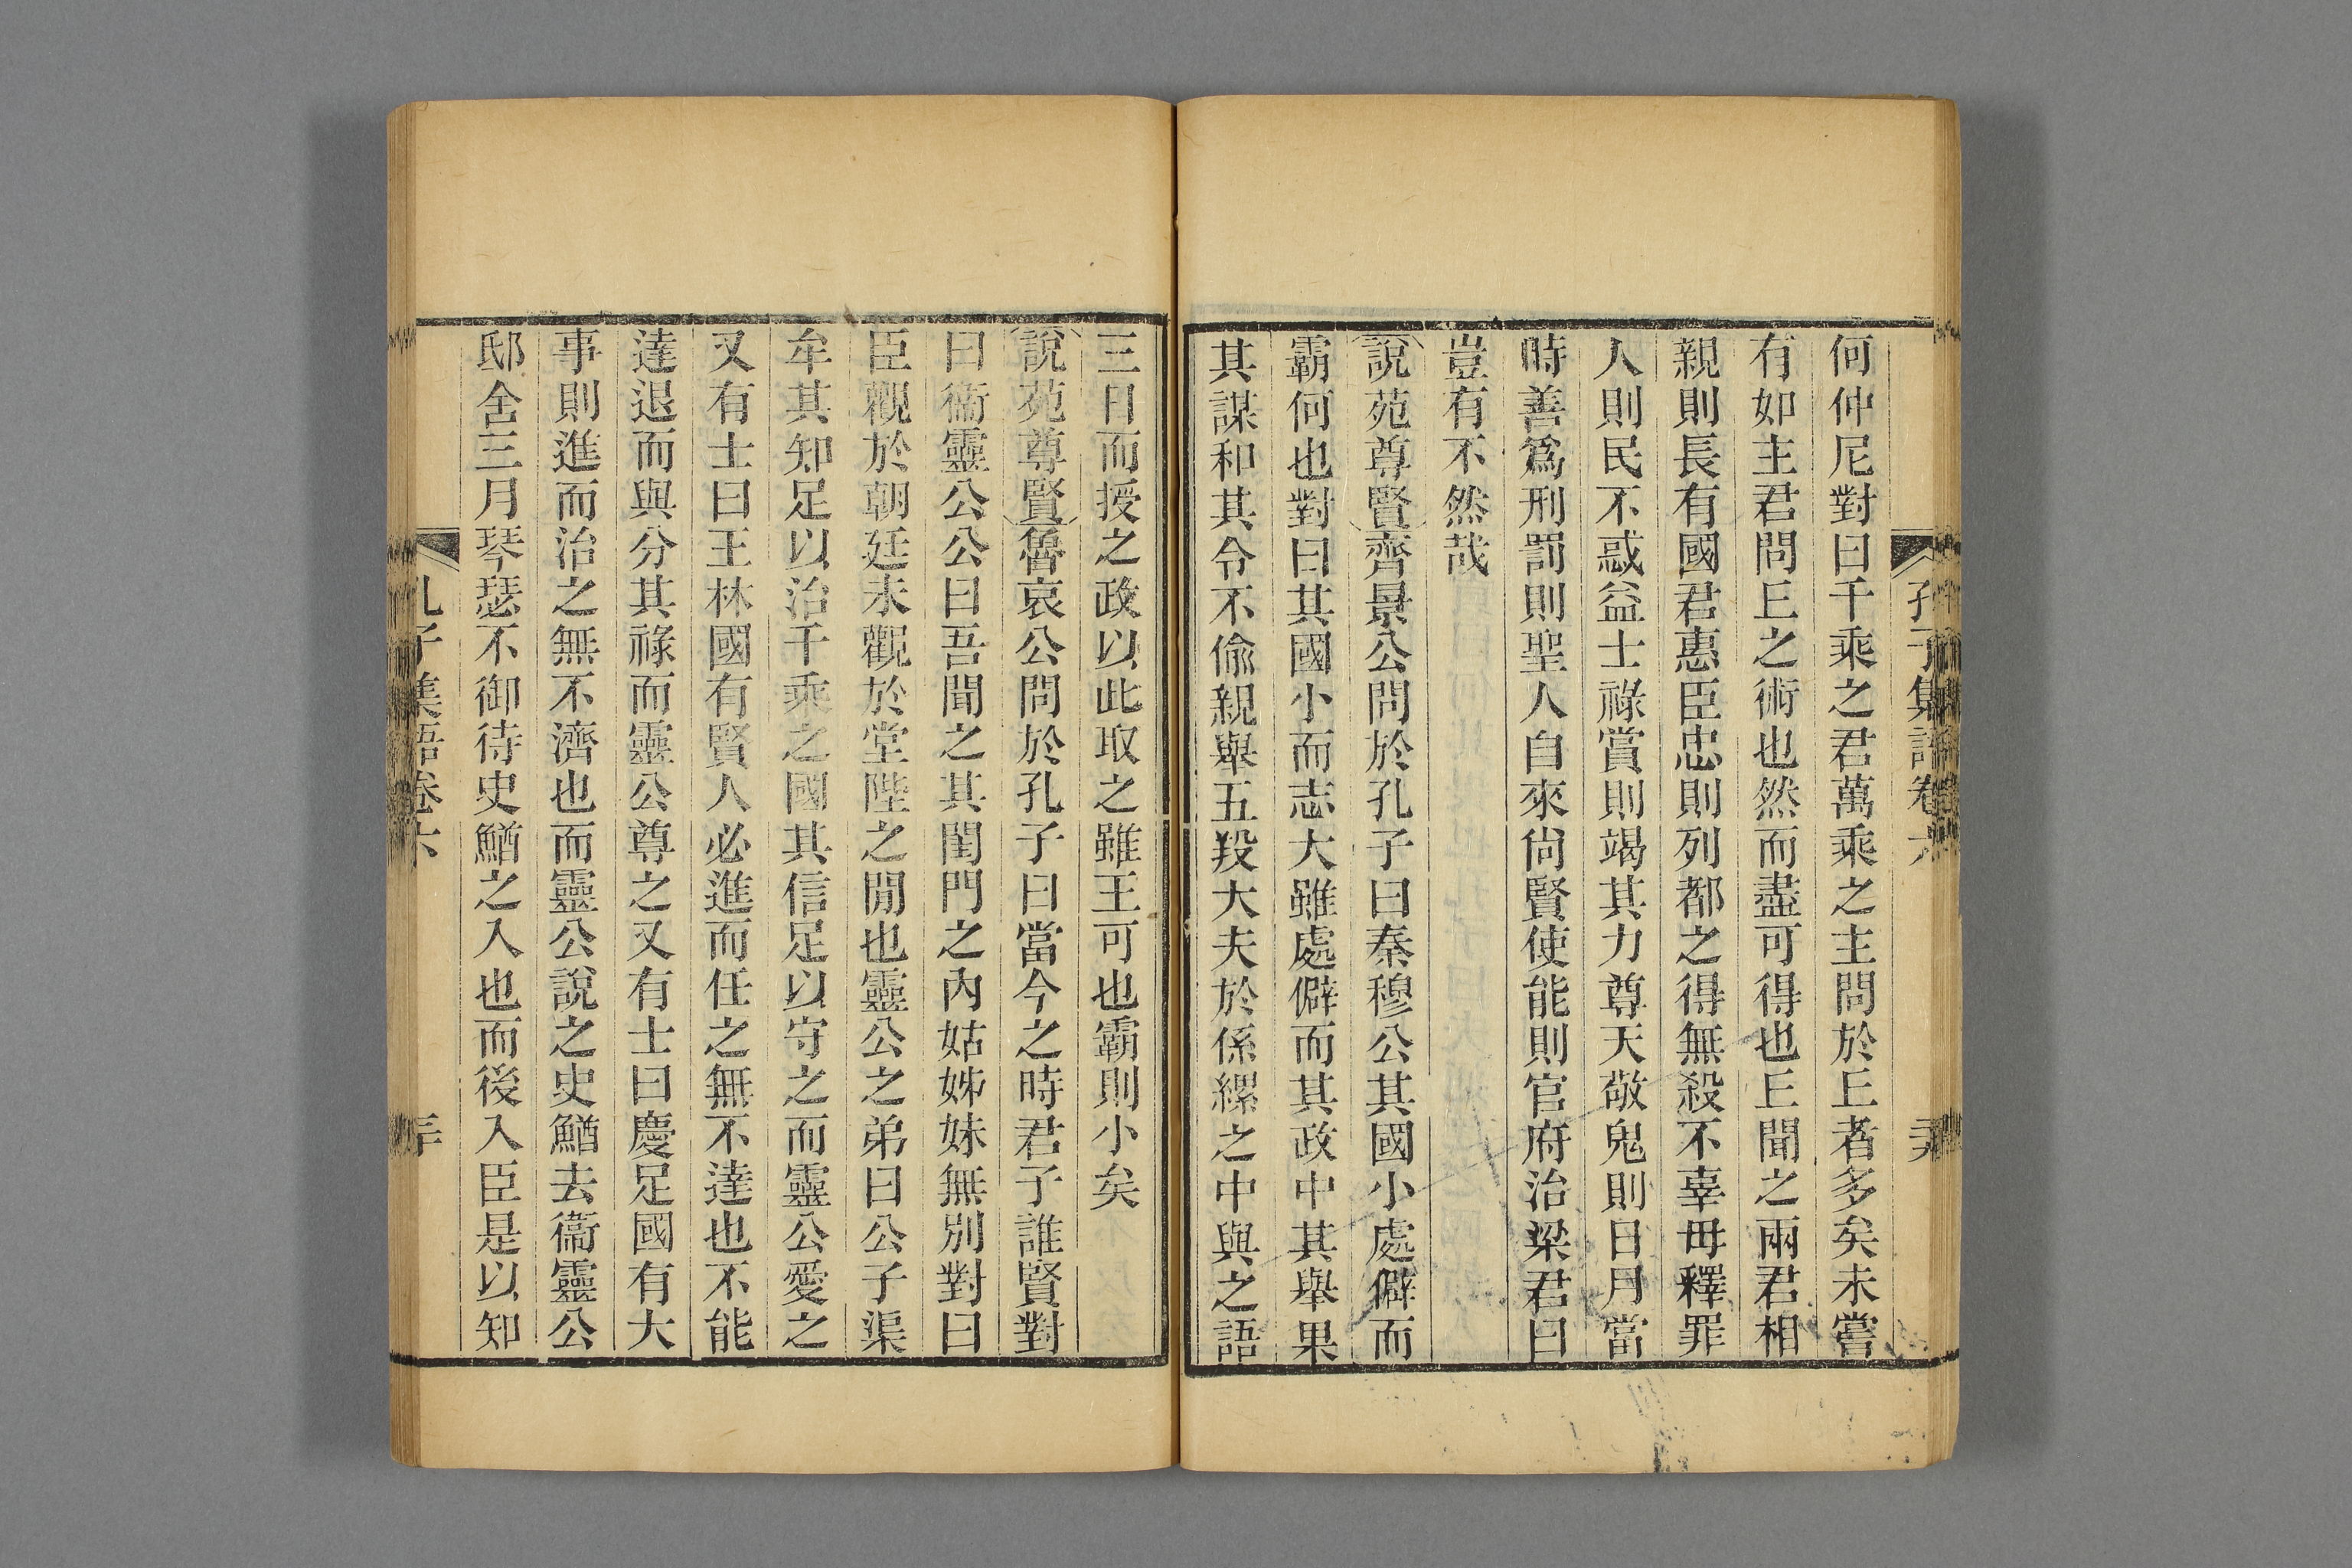 孔子集語卷六
何仲尼對曰千乘之君萬乘之主問於𠀉者多矣未嘗
有如主君問𠀉之術也然而盡可得也𠀉聞之兩君相
親則長有國君惠臣忠則列都之得無殺不辜毋釋罪
人則民不惑益士祿賞則竭其力尊天敬鬼則日月當
時善爲刑罰則聖人自來尙賢使能則官府治梁君曰
豈有不然哉
說苑尊賢齊景公問於孔子曰秦穆公其國小處僻而
霸何也對曰其國小而志大雖處僻而其政中其舉果
其謀和其令不偸親舉五羖大夫於係縲之中與之語
三日而授之政以此取之雖王可也霸則小矣
說苑尊賢魯哀公問於孔子曰當今之時君子誰賢對
曰衞靈公公曰吾聞之其閨門之內姑姊妹無別對曰
臣觀於朝廷未觀於堂陛之閒也靈公之弟曰公子渠
牟其知足以治千乘之國其信足以守之而靈公愛之
又有士曰王林國有賢人必進而任之無不達也不能
達退而與分其祿而靈公尊之又有士曰慶足國有大
事則進而治之無不濟也而靈公說之史鰌去衞靈公
邸舍三月琴瑟不御待史鰌之入也而後入臣是以知
孔子集語卷六